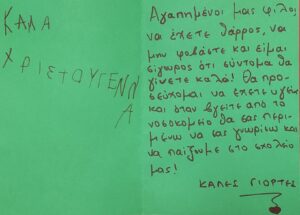 ΚΑΛΑ
ΧΡΙΣΤΟΥΓΕΝΝ
Α
Αγαπημένοι μας φίλοι
να έχετε θάρρος, να
μην φοβάστε και είμαι
σίγουρος ότι σύντομα θα
γίνετε καλά! Θα προ-
σεύχομαι να έχετε υγεία
και όταν βγείτε από το
νοσοκομείο θα σας περι-
μένω να σας γνωρίσω και
να παίξουμε στο σχολείο
μας!
ΚΑΛΕΣ ΓΙΟΡΤΕΣ